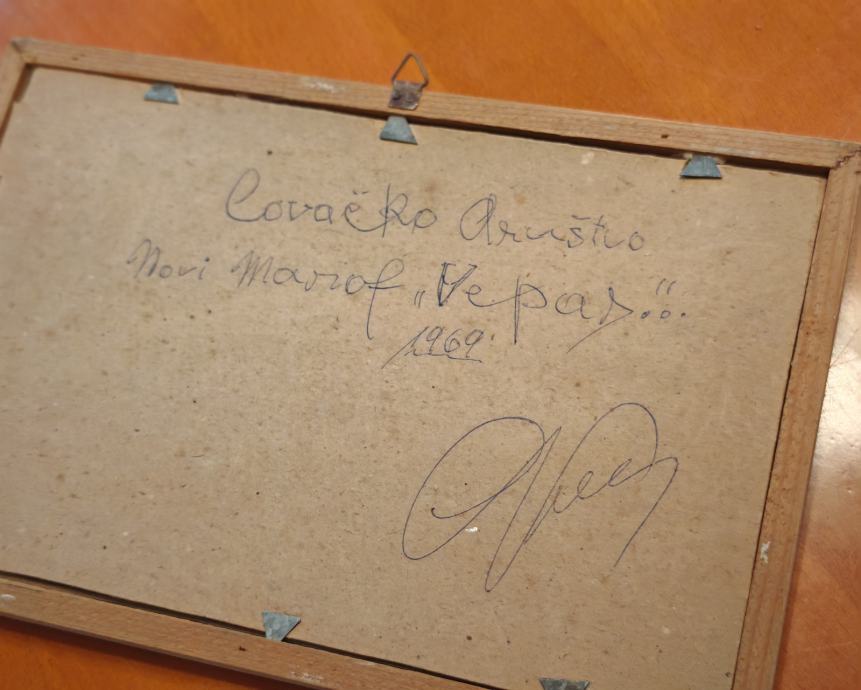 Lovačko Društvo
Novi Marof „Vepar“
1969